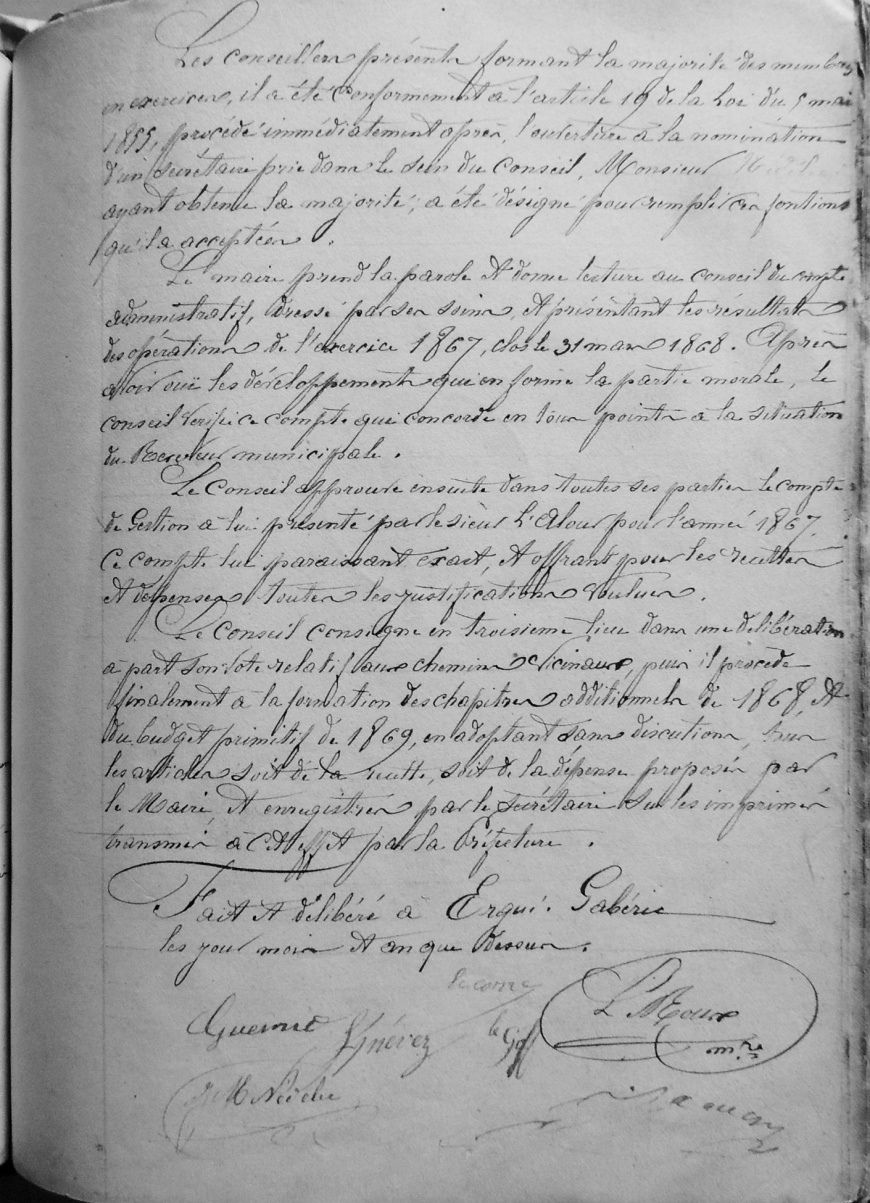 Les conseillers présents formant la majorité des membres
en exercices, il a été conformément à l'article 19 de la Loi du 5 mai
1855, procédé immédiatement après, l'ouverture à la nomination
d'un secrétaire pris dans le sein du Conseil, Monsieur
ayant obtenu la majorité, a été désigné pour remplir ces fontions
qu'il a acceptées.
Le maire prend la parole et donne lecture au conseil du compte
administratif, dressé par ses soins, et présentant les résultats
des opérations de l'exercice 1867, clos le 31 mars 1868. Après
avoir ouï les développements qui en forme la partie morale, le
conseil vérifie ce compte qui concorde en tous points à la situation
du Receveur municipale.
Le Conseil approuve ensuite dans toutes ses parties le compte
de Gestion à lui présenté par le sieur pour l'année 1867.
Ce compte lui paraissant exact, et offrant pour les recettes
et dépenses toutes les justifications voulues.
Le Conseil consigne en troisième lieu dans une délibération
à part son vote relatif aux chemins vicinaux, puis il procède
finalement à la formation des chapitres additionnels de 1868, et
du budget primitif de 1869, en adoptant sans discutions, tous
les articles soit de la recette, soit de la dépense proposés par
le Maire, et enregistrés par le secrétaire sur les imprimés
transmis à cet effet par la Préfecture.
Fait et délibéré à Ergué-Gabéric
les jour mois et an que dessus.
Lecorre
Guennec Quénez le Goff L. Roux
m.re